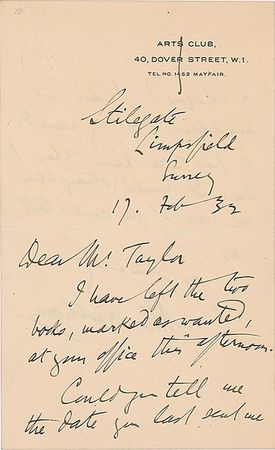 ARTS CLUB,
40, DOVER STREET, W.1.
TEL. NO. 1452 MAYFAIR.
Stilegate
Limpsfield
Surrey
17. Feb 32
Dear Mr. Taylor
I have left the two
books, marked as wanted,
at your office this afternoon.
Could you tell me
the date you last sent me